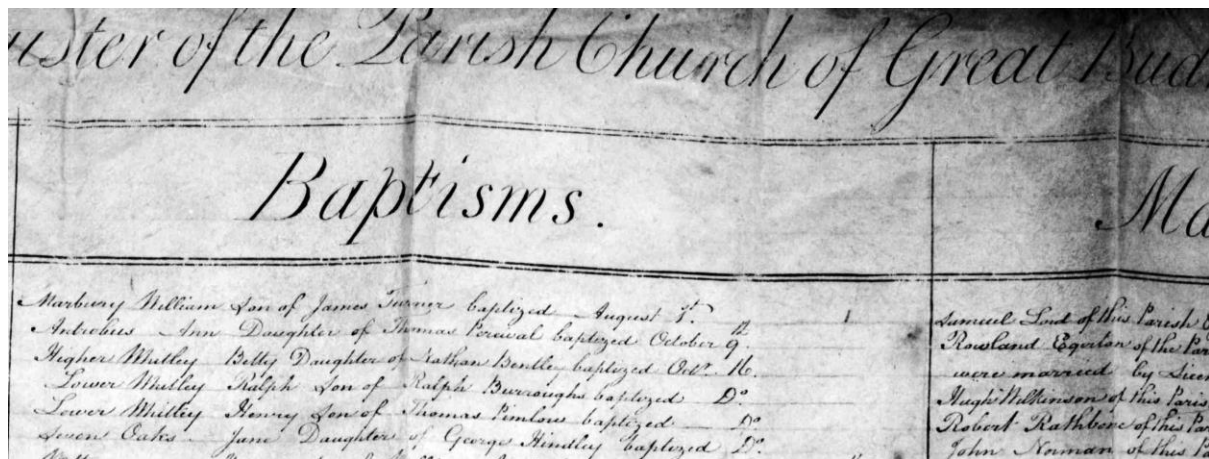 ister of the Parish Church of Great Bud
Baptisms.
Ma
Marbury William Son of James Turner baptized August 1st. 1
Antrobus Ann Daughter of Thomas Percival baptized October 9th.
Higher Whitley Betty Daughter of Nathan Bentley baptized Octr. 16.
Lower Whitley Ralph Son of Ralph Burroughs baptized Do
Lower Whitley Henry Son of Thomas Pimlow baptized Do
Seven Oaks Jane Daughter of George Hindley baptized Do.
Samuel Lord of this Parish
Rowland Egerton of the Par
were married by Licen
Hugh Wilkinson of this Paris
Robert Rathbone of this Par
John Norman of this Pa